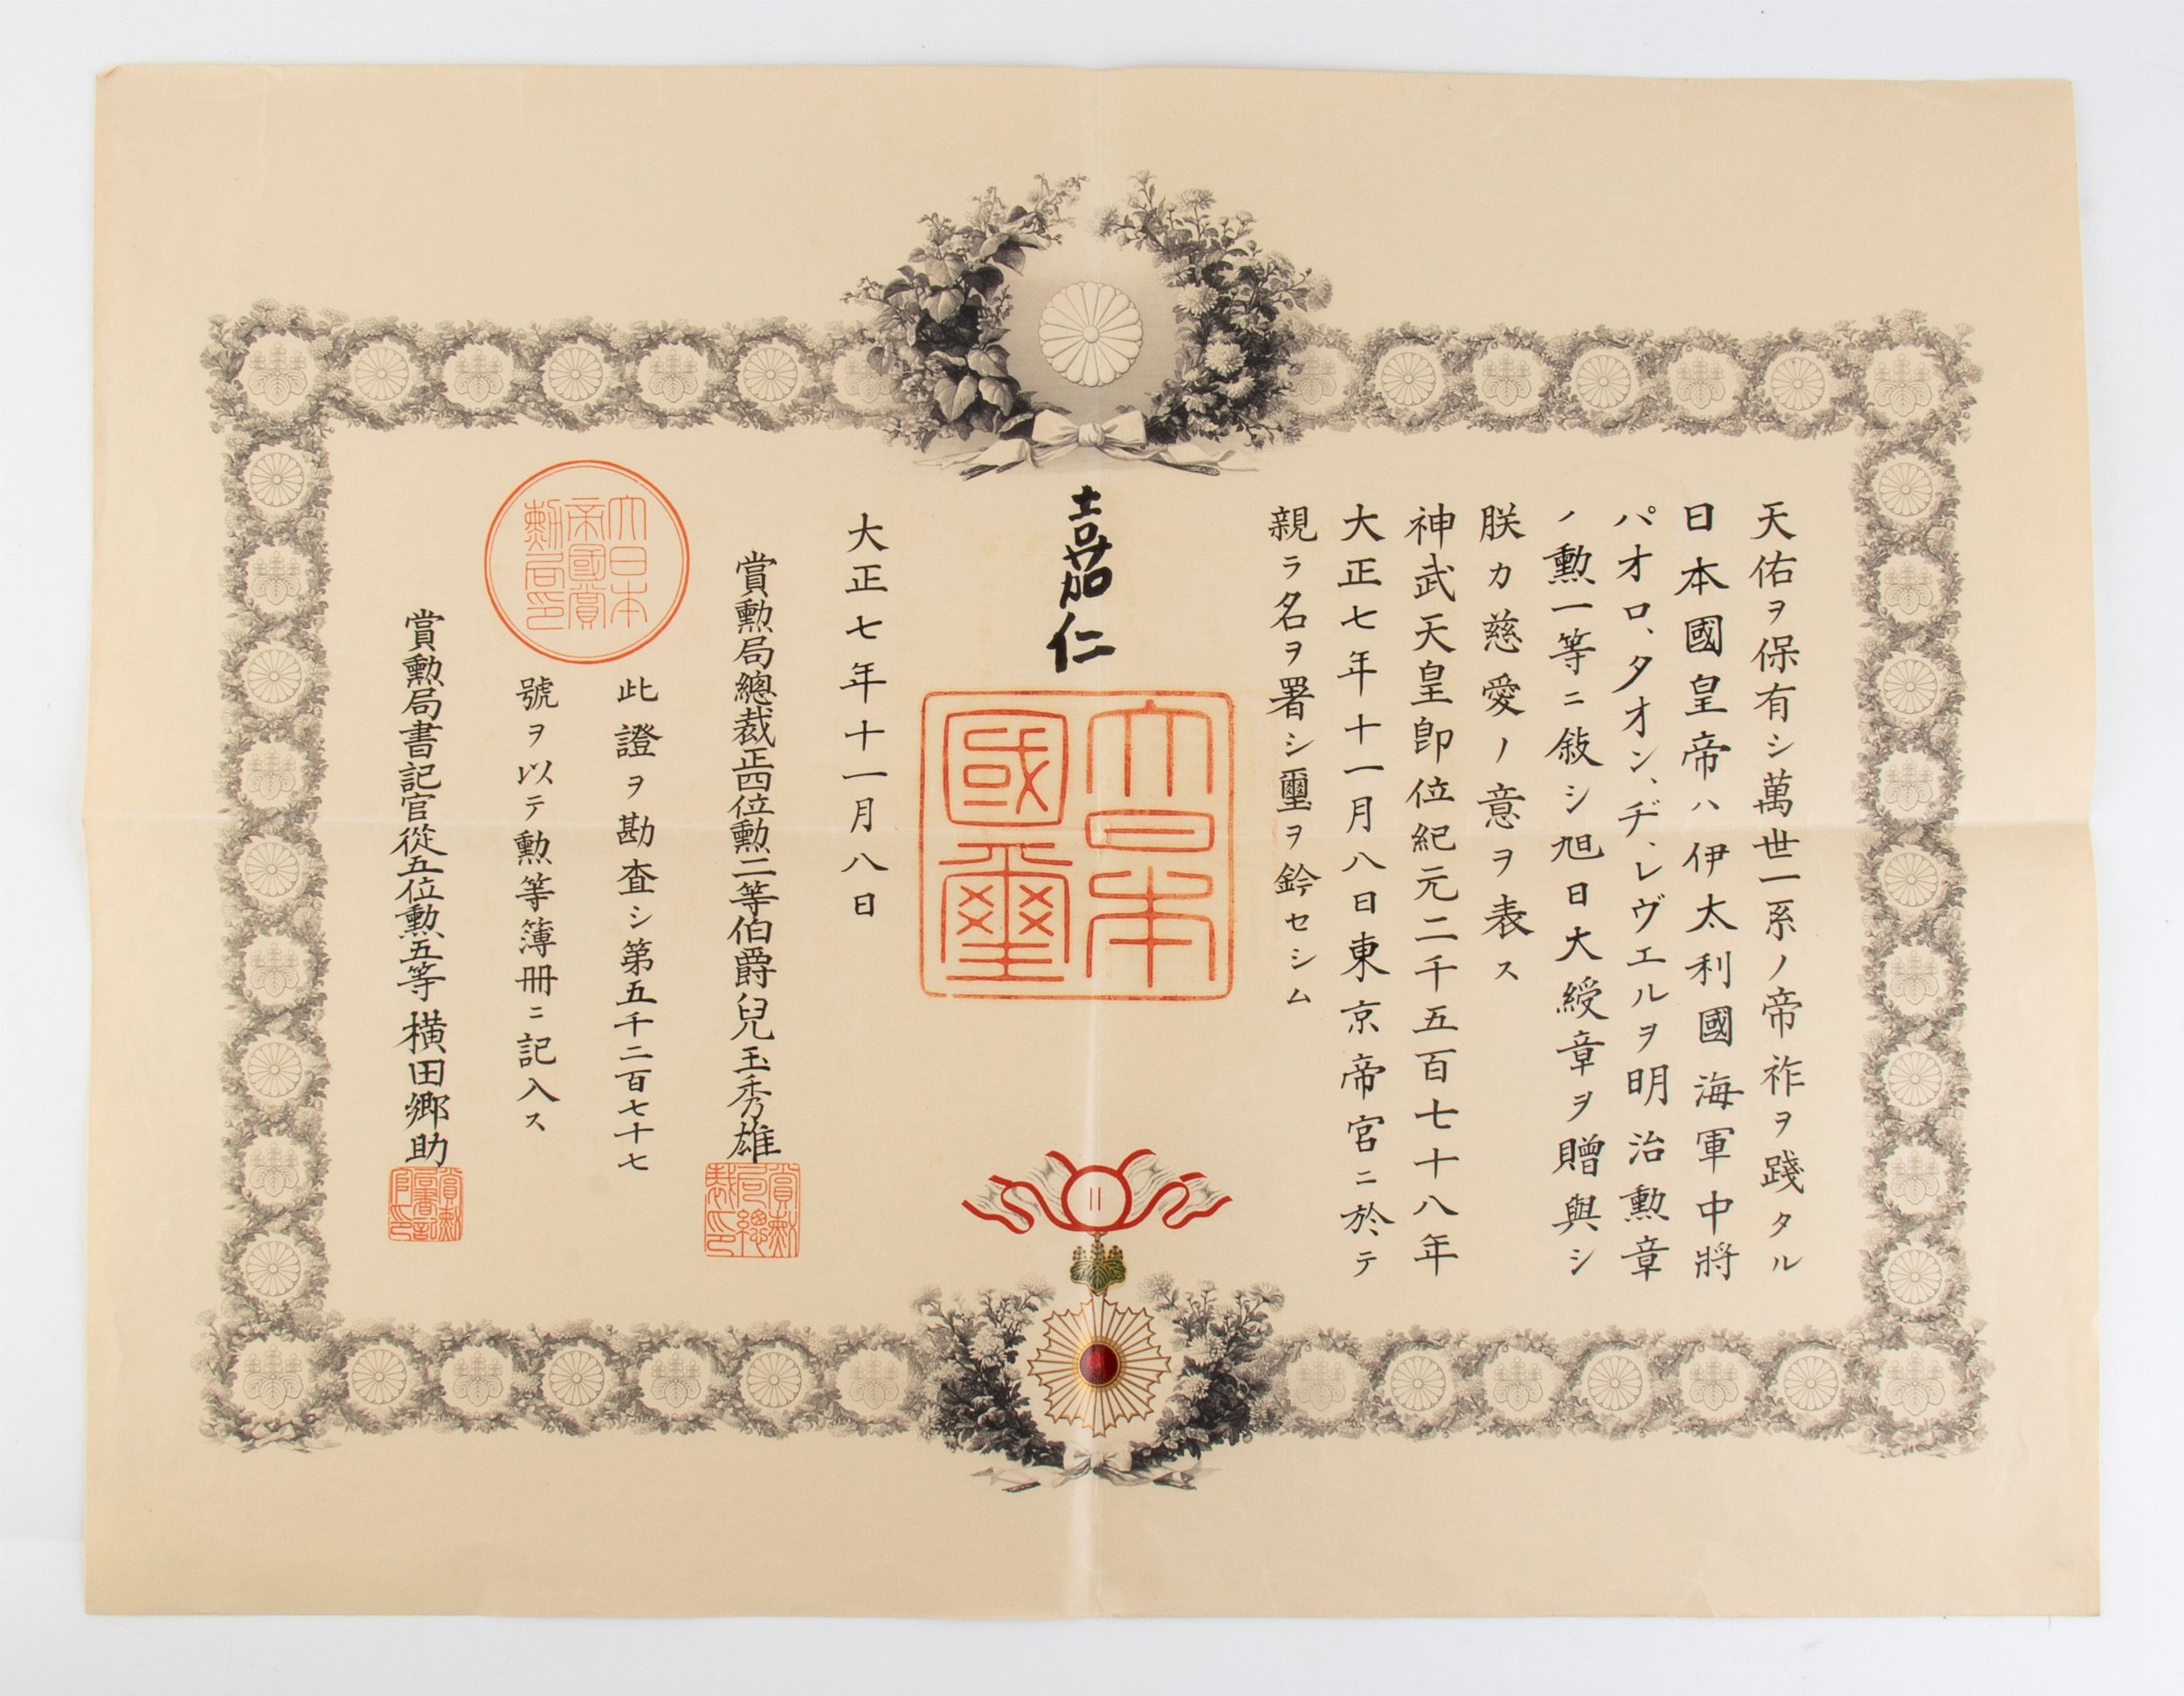 天佑ヲ保有シ萬世一系ノ帝祚ヲ踐タル
日本國皇帝ハ伊太利國海軍中將
パオロ、タオン、ヂ、レヴエルヲ明治勲章
ノ勲一等ニ敍シ旭日大綬章ヲ贈與シ
朕カ慈愛ノ意ヲ表ス
神武天皇即位紀元二千五百七十八年
大正七年十一月八日東京帝宮ニ於テ
親ラ名ヲ署シ璽ヲ鈐セシム
嘉仁
大日本
國璽
大正七年十一月八日
賞勲局總裁正四位勲二等伯爵兒玉秀雄
賞勲局總裁印
此證ヲ勘査シ第五千二百七十七
號ヲ以テ勲等簿冊ニ記入ス
大日本帝國賞勲局印
賞勲局書記官從五位勲五等横田郷助
賞勲局書記官印